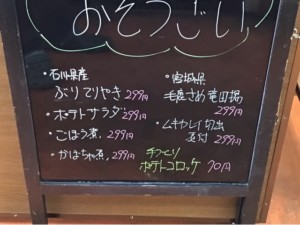 おそうざい
・石川県産
ぶりてりやき 299円
・ポテトサラダ 299円
・ごぼう煮. 299円
・かぼちゃ煮. 299円
・宮城県
毛鹿さめ竜田揚
299円
・ムキカレイ切出
衣付 299円
手づくり
ポテトコロッケ 70円